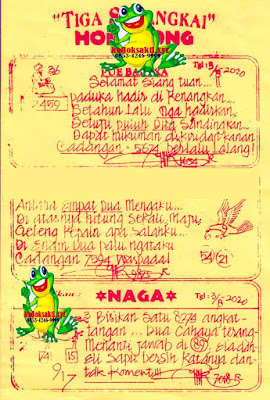 "TIGA SERANGKAI"
HONGKONG
kodoksakti.xyz
0853-4246-9009
PUEBALIKA
Tgl: 3/8 2020
36
2459
Selamat siang tuan...!
paduka hadir di kenangkan...
Setahun lalu Tiga hadirkan
Seluju puluh Dua Sandingkan...
Dapat hukuman di
Cadangan: 5674 berlalu lalang!
Antara Empat dua Mengaku...
Di atasnya hitung sekali maju,
Geleng kepala apa salahku...
Di Enam Dua palu ngaraku
Cadangan 7594 waspada!
54 21
kodoksakti.xyz
0853-4246-9009
NAGA
Tgl: 3/8 2020
3 Bisikan Satu 8274 angkat-
tangan... Dua Cahaya terang
Menanti jawab di 89
Sapu bersih katanya dan
tak Komentar!!
74 15